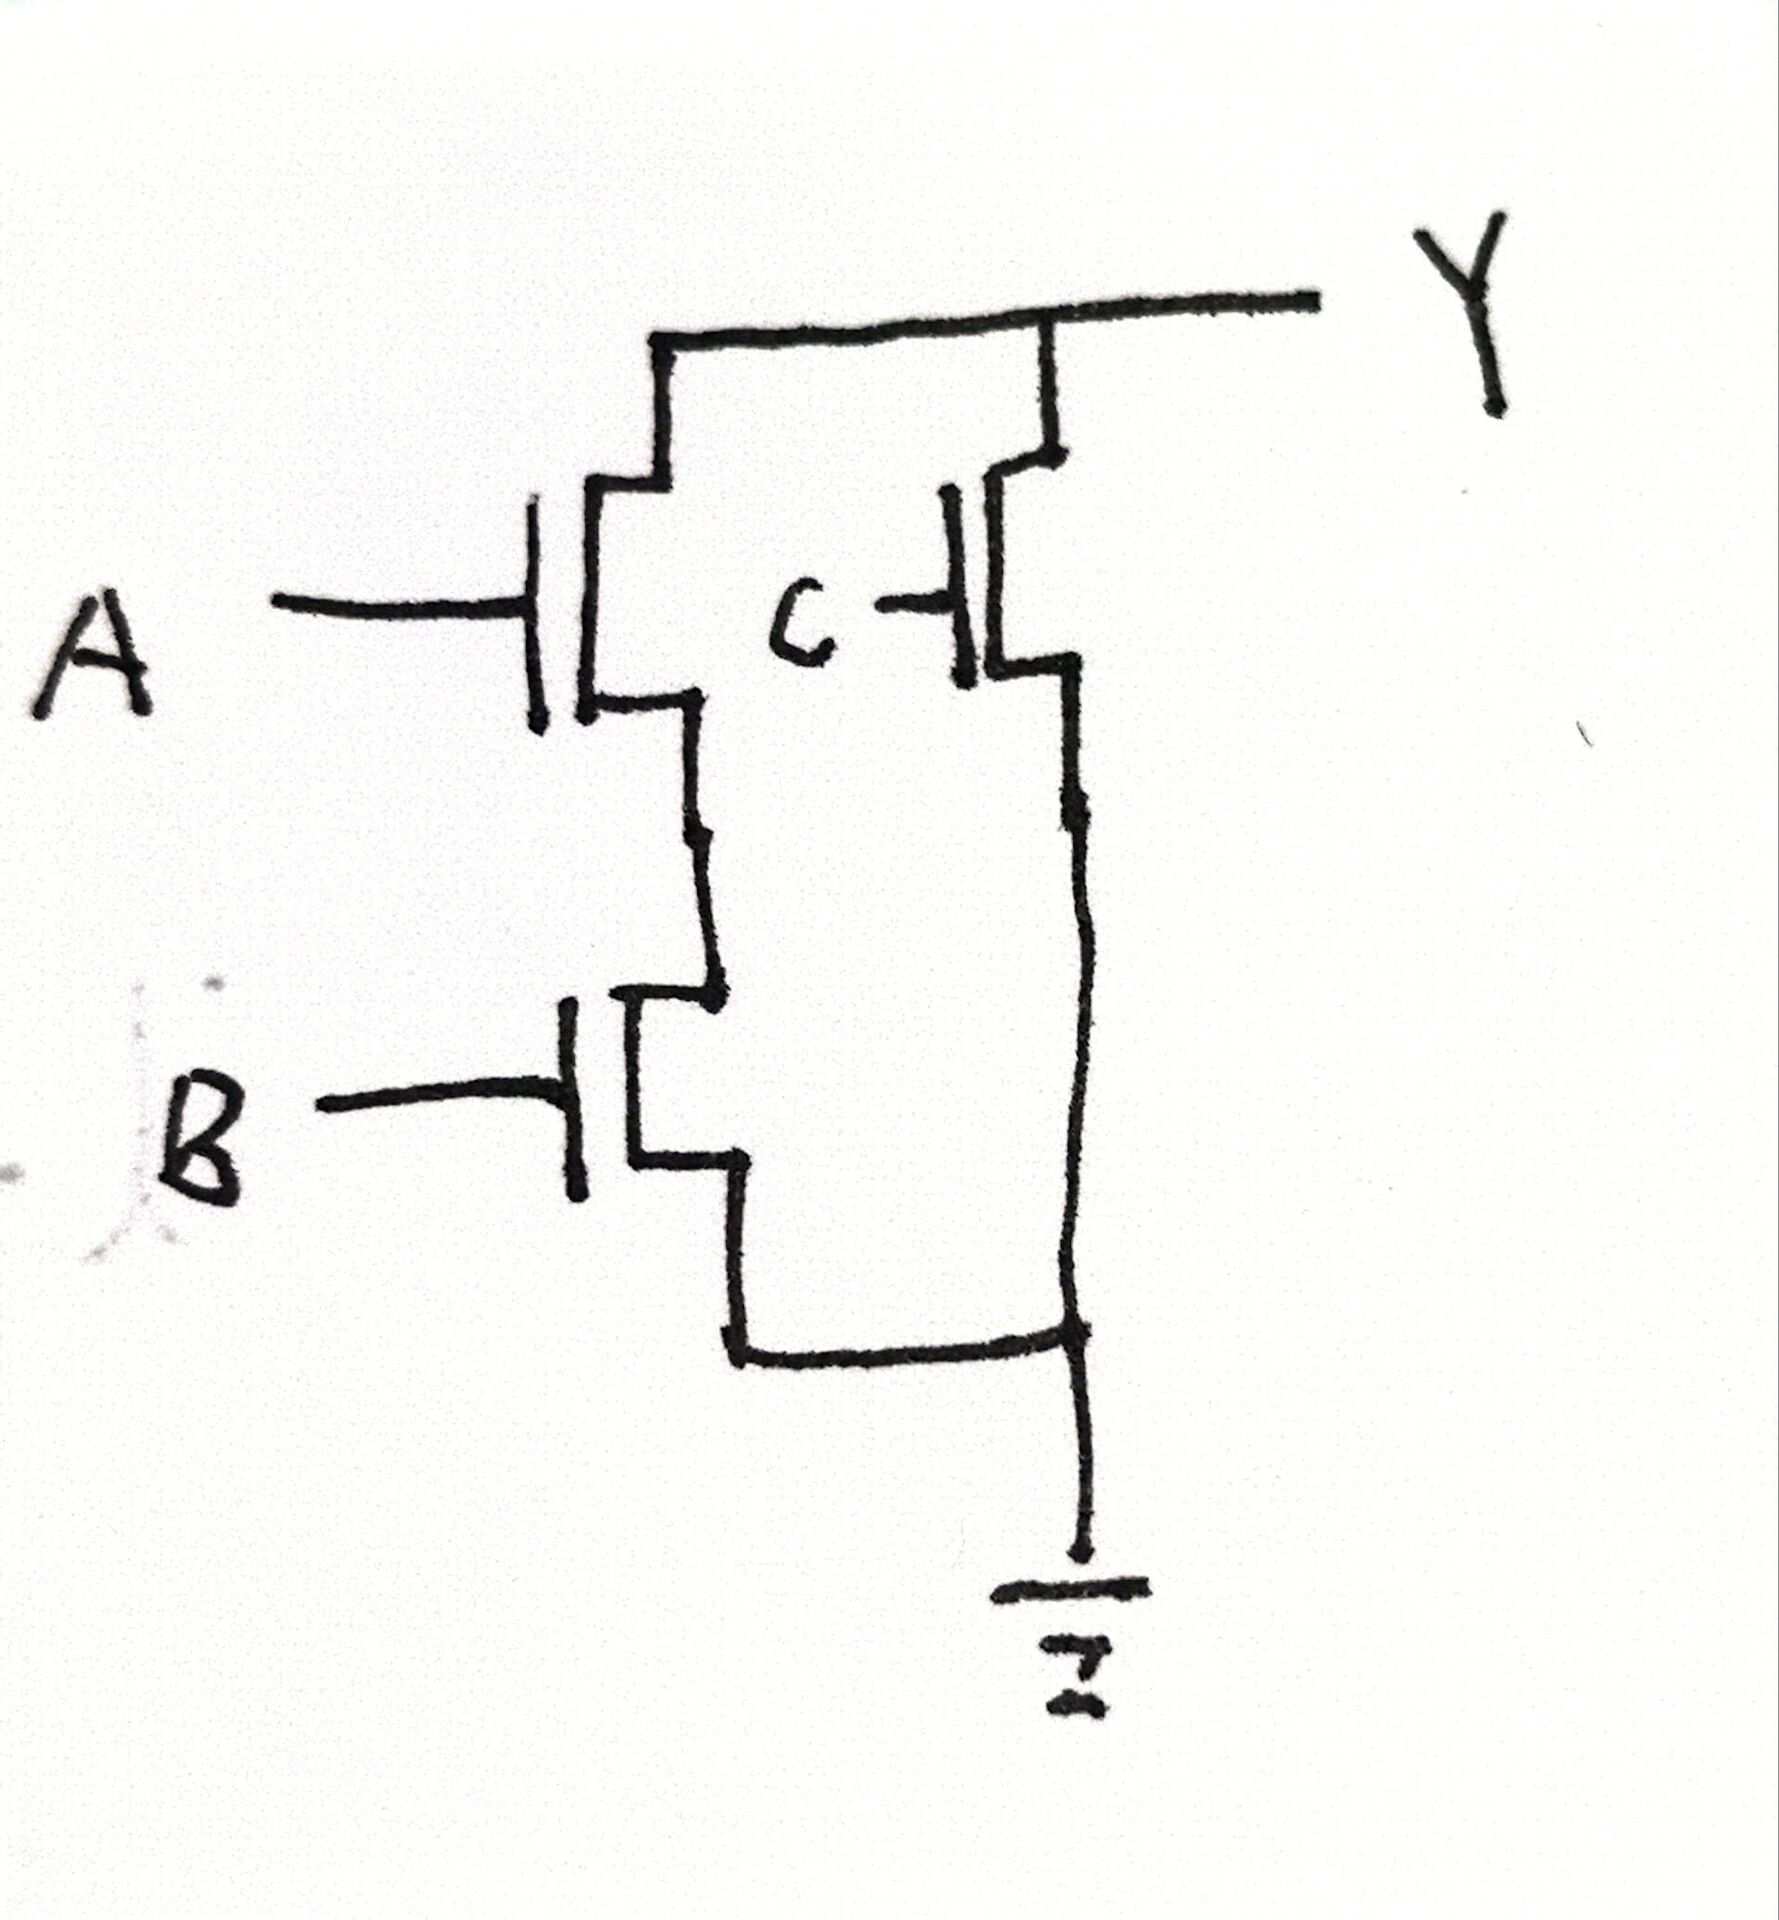 Y
A
C
B